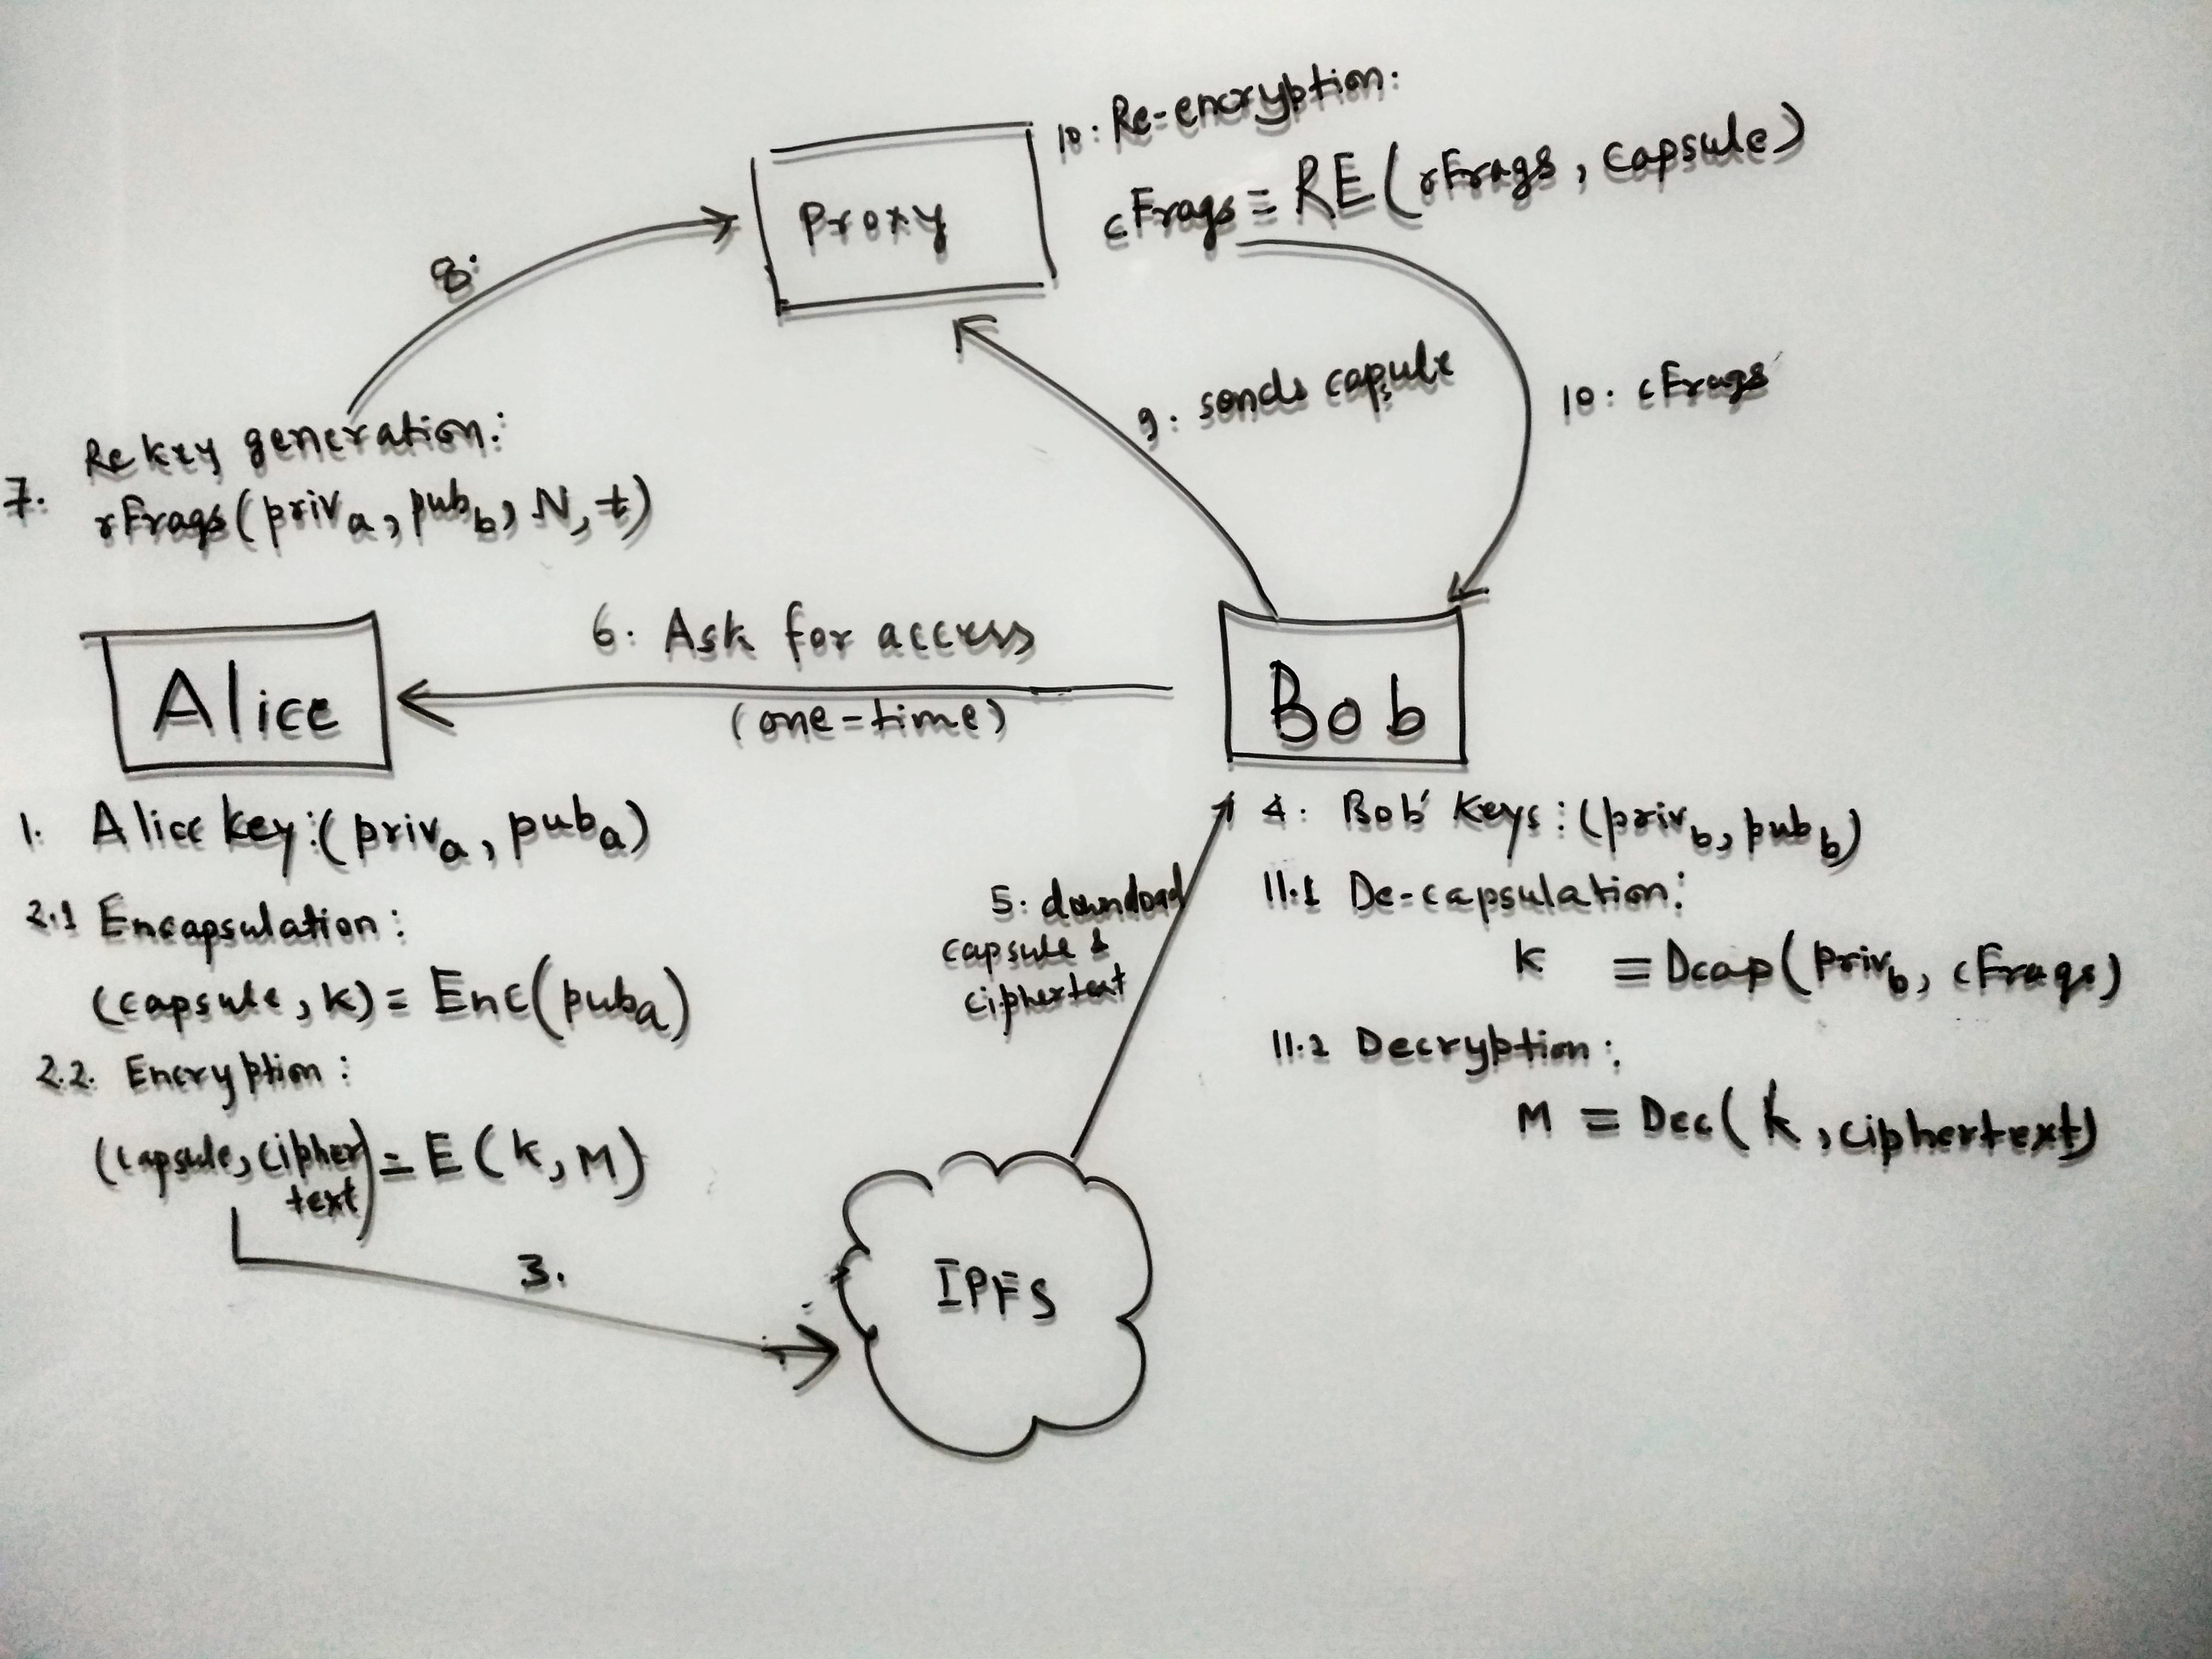 10: Re-encryption:
cFrags = RE(rFrags, capsule)
Proxy
8:
9: sends capsule
10: cFrags
Rekey generation:
7. rFrags(priv_a, pub_b, N, t)
6: Ask for access
(one-time)
Alice
Bob
1. Alice key:(priv_a, pub_a)
2.1 Encapsulation:
(capsule, k) = Enc(pub_a)
2.2. Encryption:
(capsule, cipher
text) = E(k, M)
3.
5: download
capsule &
ciphertext
4: Bob' Keys:(priv_b, pub_b)
11.1 De-capsulation:
k = Dcap(priv_b, cFrags)
11.2 Decryption:
M = Dec(k, ciphertext)
IPFS